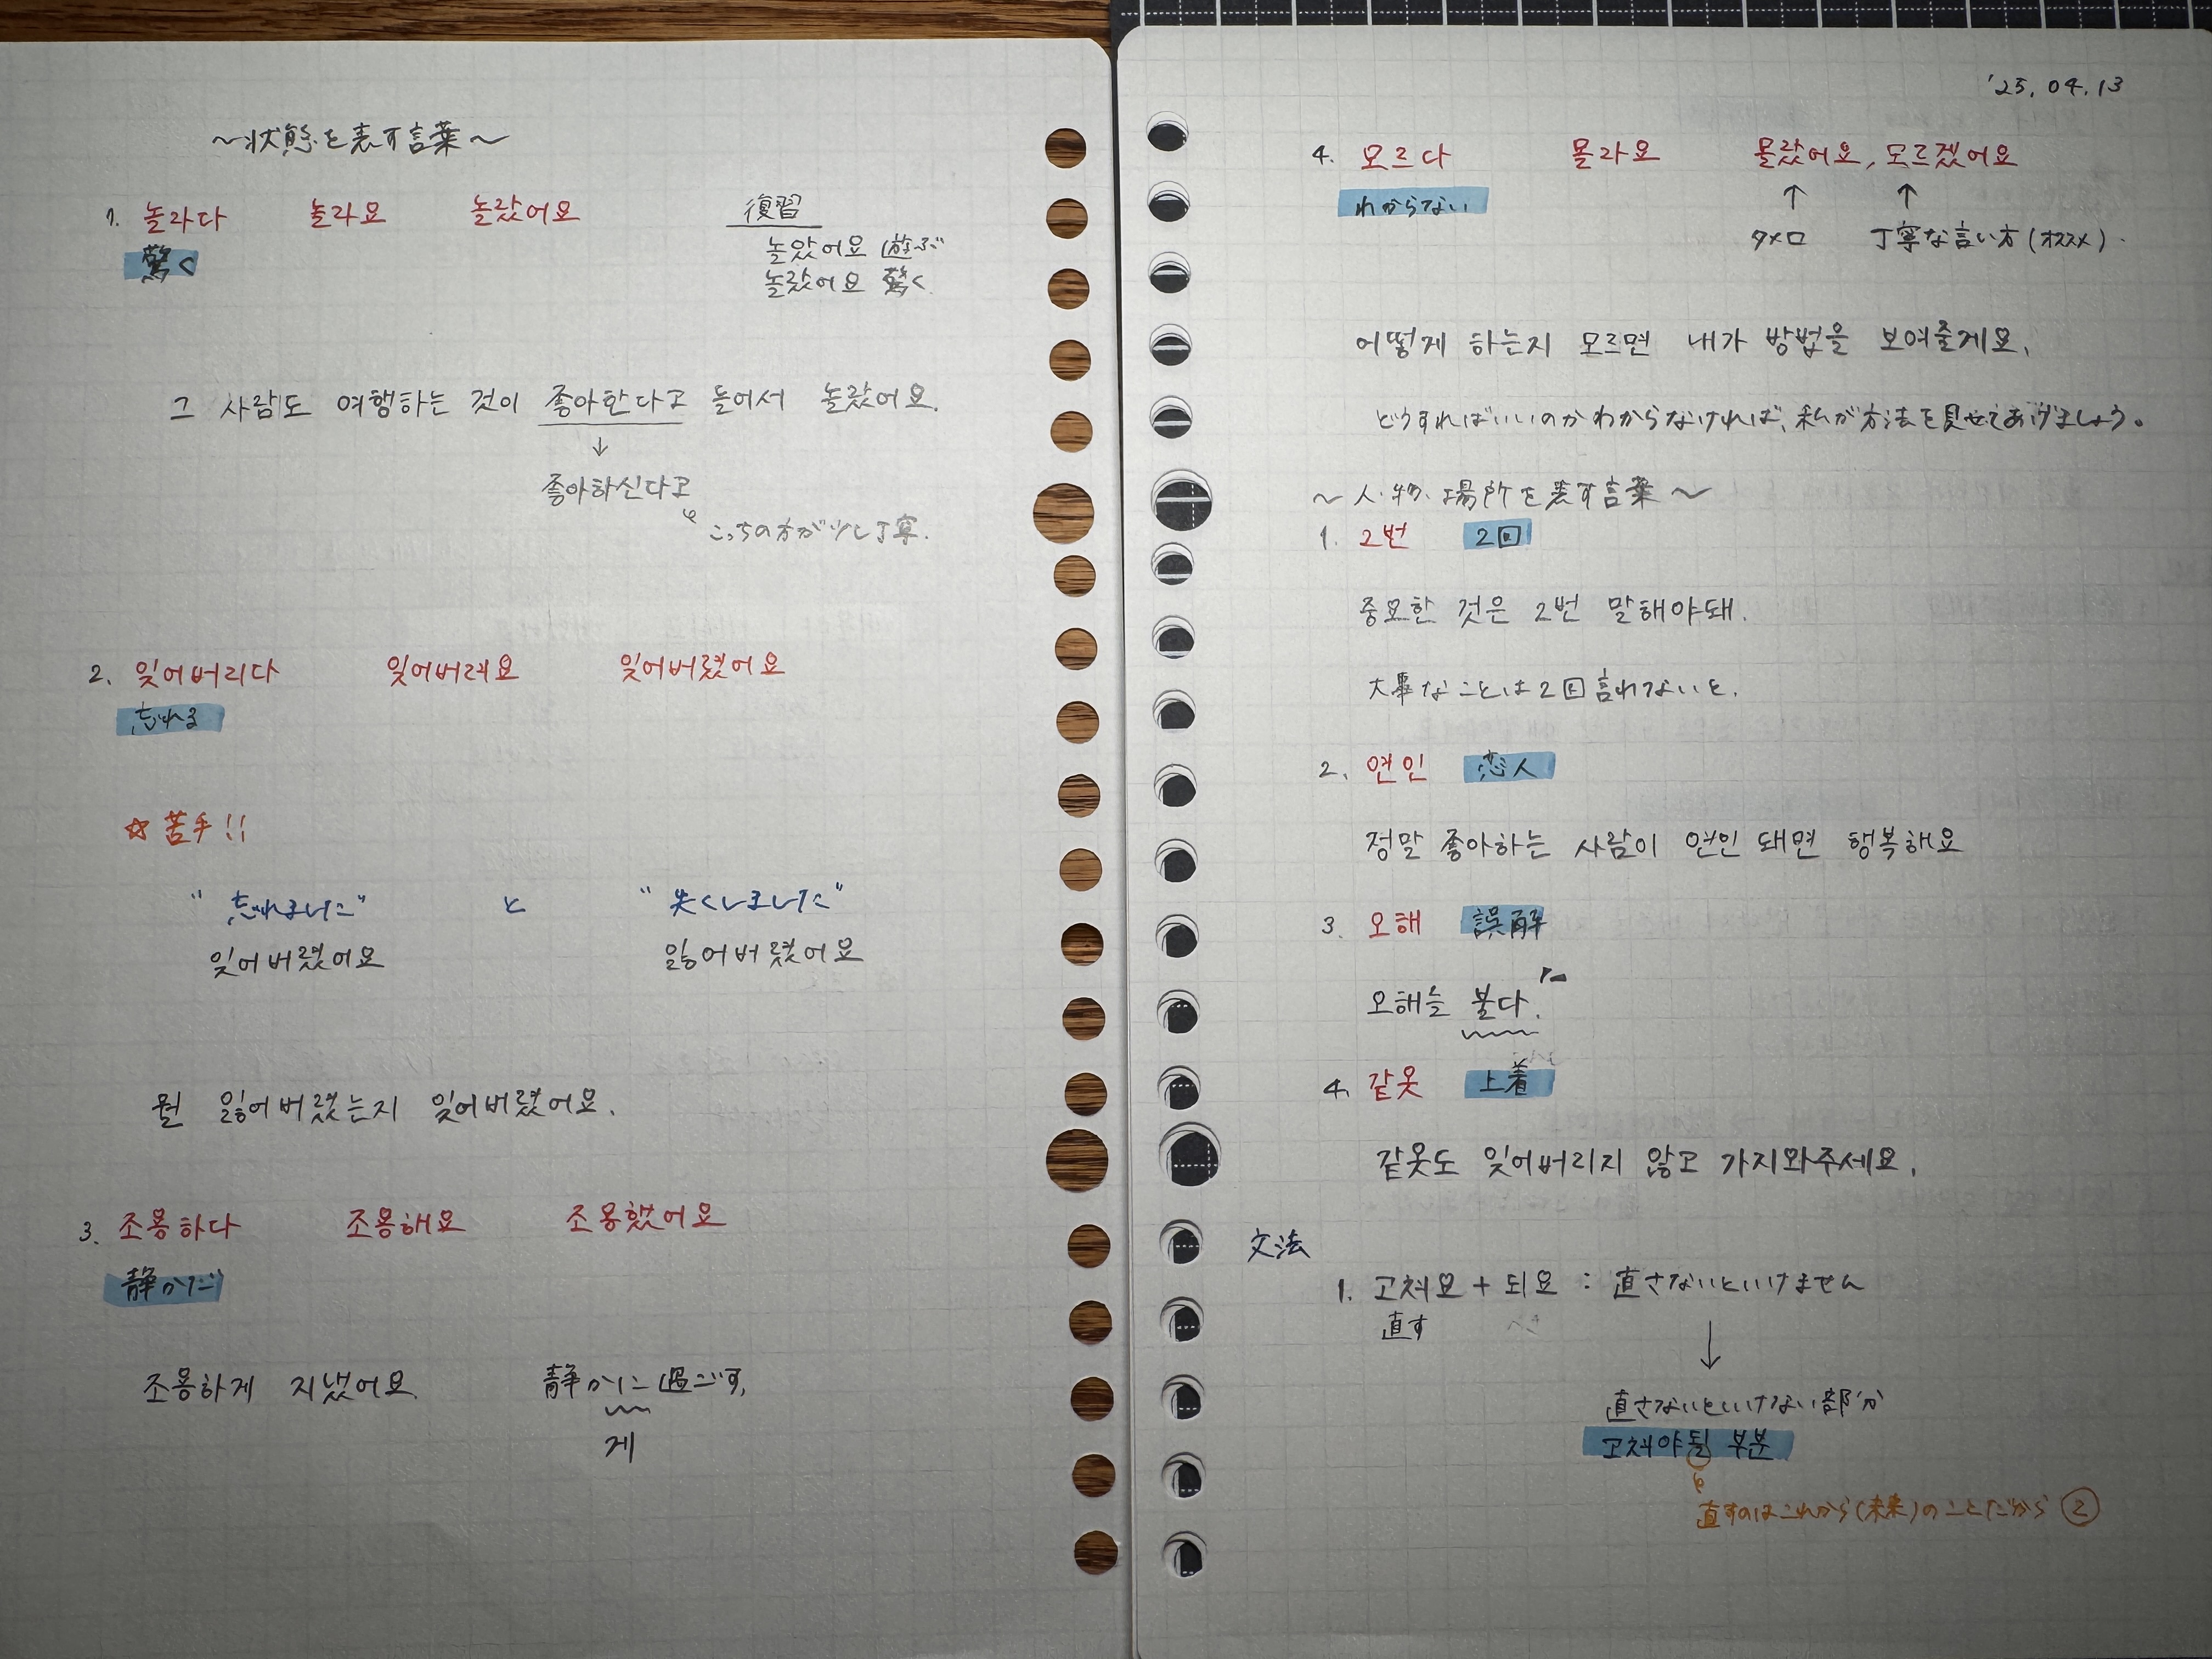 ～状態を表す言葉～
1. 놀라다 놀라요 놀랐어요
驚く
復習
놀았어요 遊ぶ
놀랐어요 驚く
그 사람도 여행하는 것이 좋아한다고 들어서 놀랐어요.
↓
좋아하신다고
こっちの方が少し丁寧.
2. 잊어버리다 잊어버려요 잊어버렸어요
忘れる
☆苦手!!
"忘れました" と "失くしました"
잊어버렸어요 잃어버렸어요
뭘 잃어버렸는지 잊어버렸어요.
3. 조용하다 조용해요 조용했어요
静かだ
조용하게 지냈어요. 静かに過ごす.
게
'25. 04. 13
4. 모르다 몰라요 몰랐어요, 모르겠어요
わからない
↑ ↑
タメ口 丁寧な言い方(オススメ).
어떻게 하는지 모르면 내가 방법을 보여줄게요.
どうすればいいのかわからなければ、私が方法を見せてあげましょう。
～人・物・場所を表す言葉～
1. 2번 2回
중요한 것은 2번 말해야돼.
大事なことは2回言わないと.
2. 연인 恋人
정말 좋아하는 사람이 연인 돼면 행복해요
3. 오해 誤解
오해늘 불다.
4. 같옷 上着
같옷도 잊어버리지 않고 가지와주세요.
文法
1. 고쳐요 + 되요 : 直さないといけません
直す
↓
直さないといけない部分
고쳐야될 부분
直すのはこれから(未来)のことだから ②